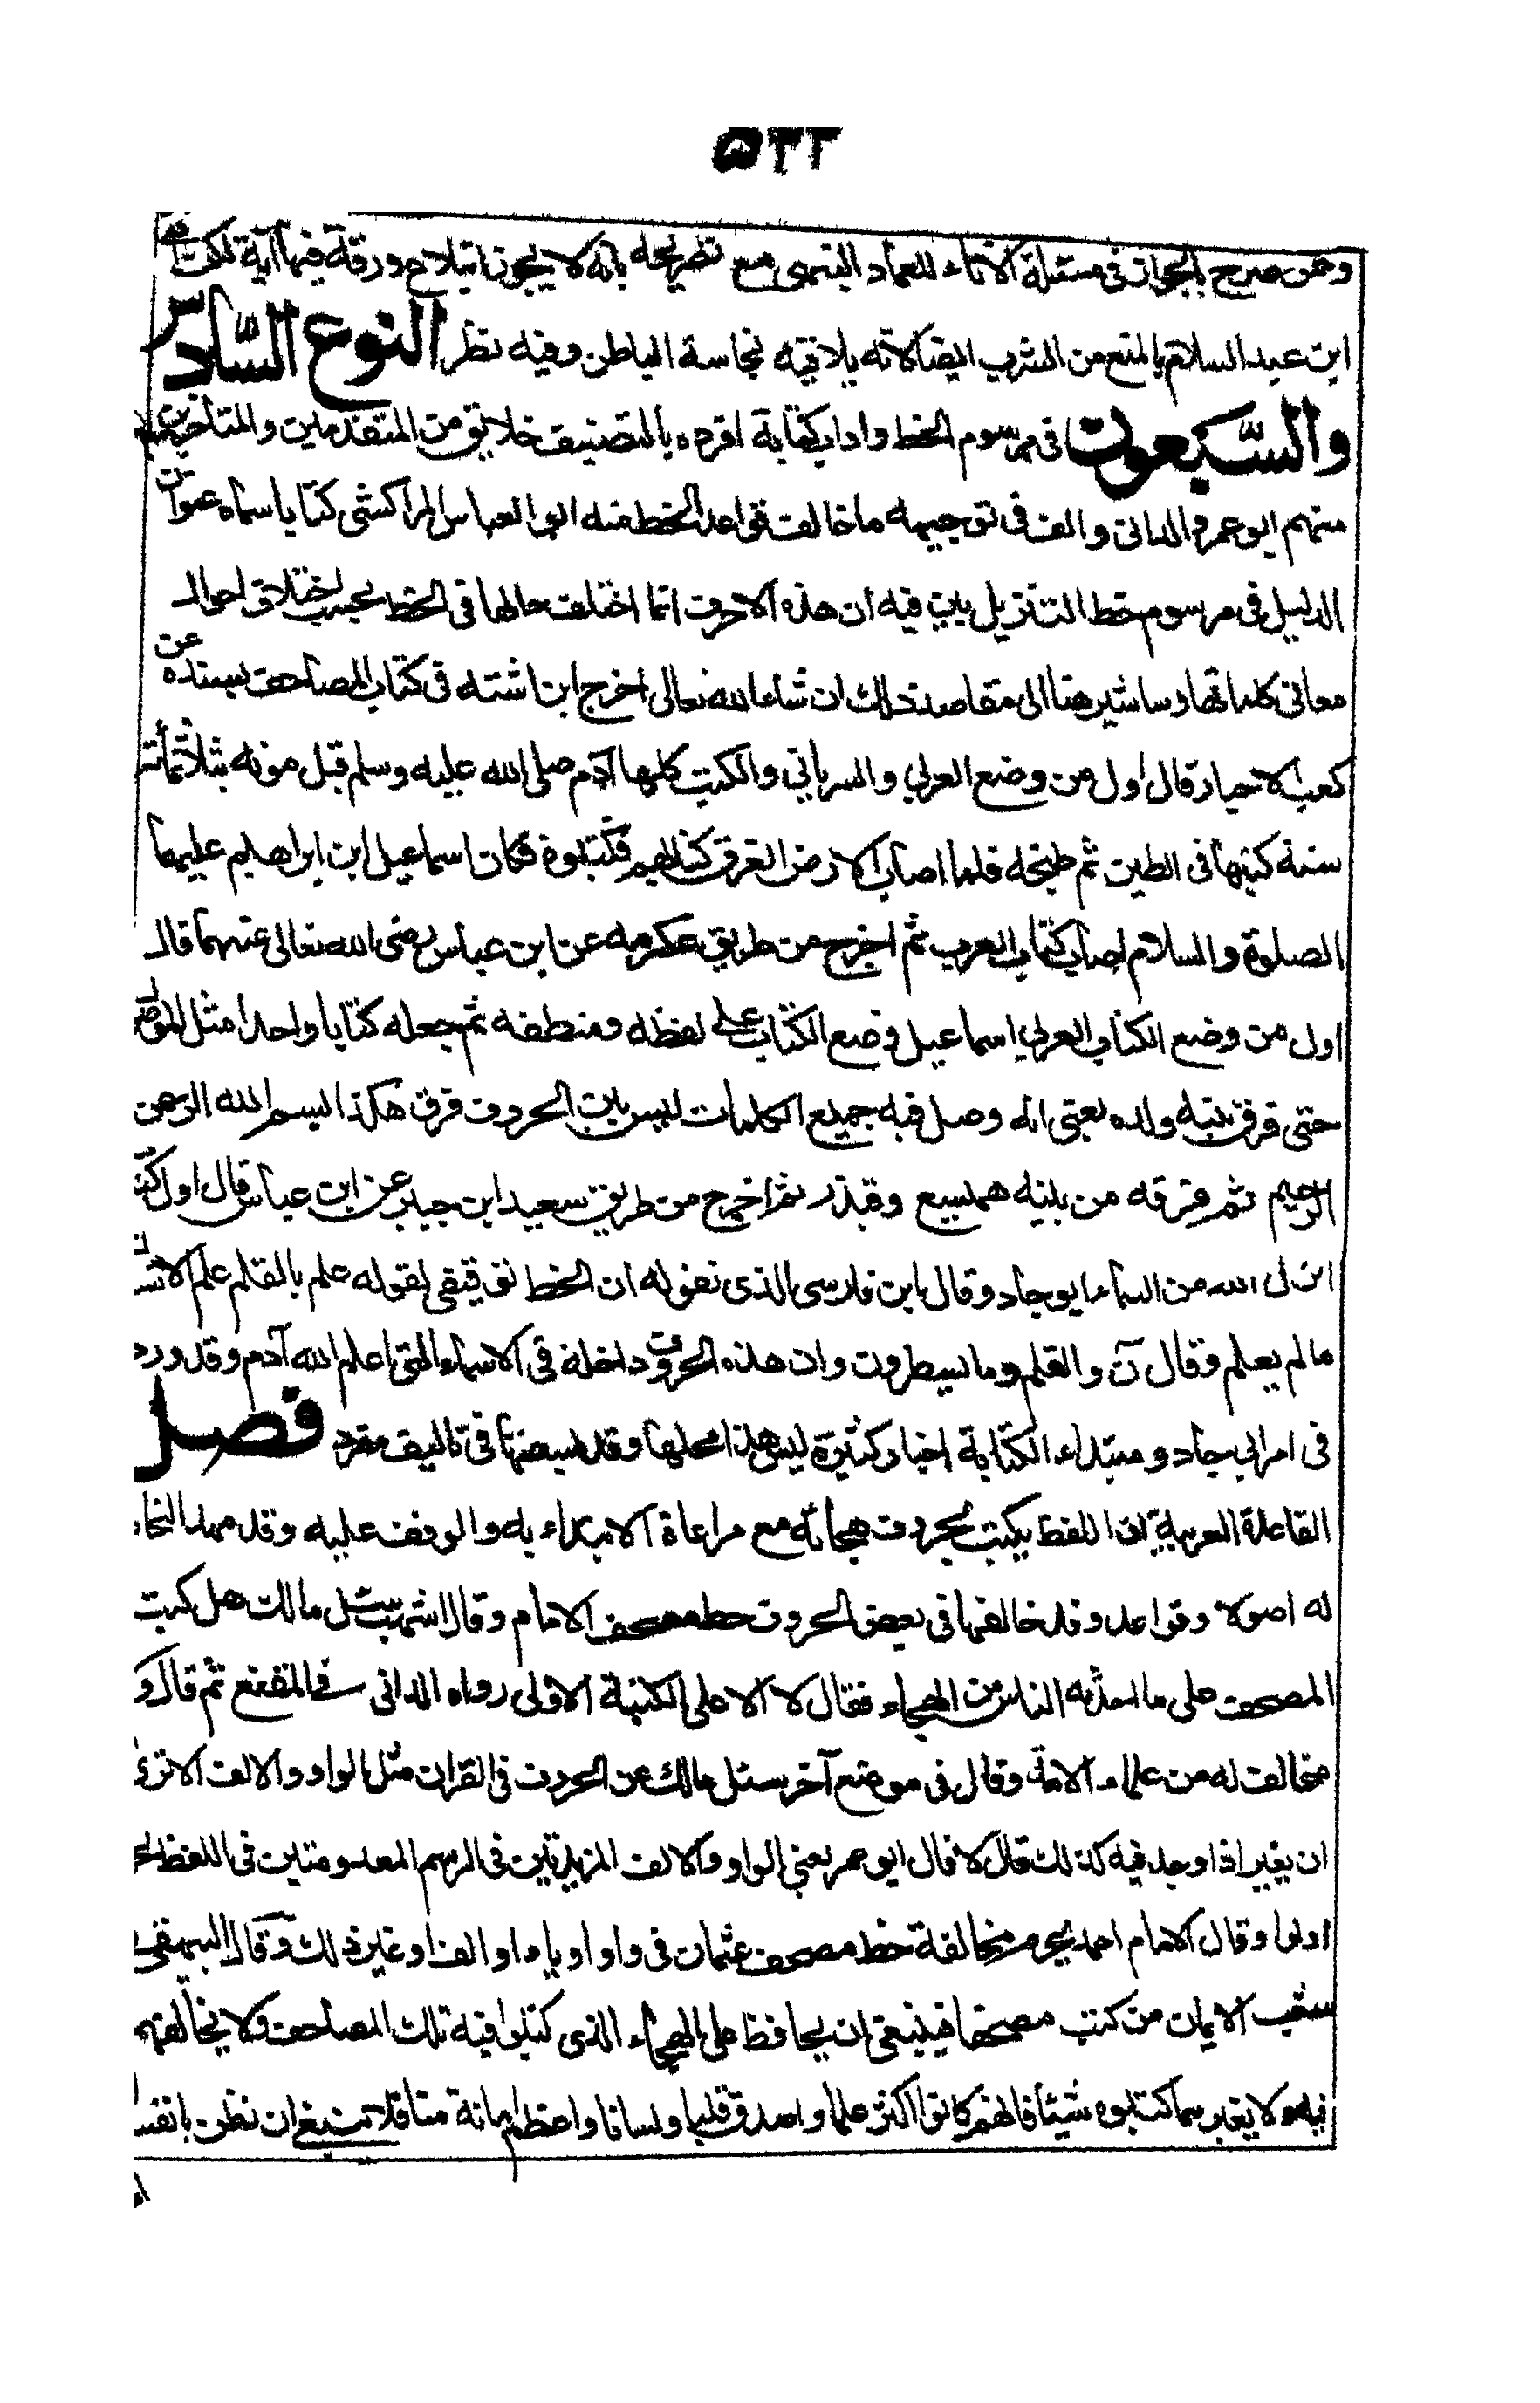 ٥٣٢
وممن صرح بالجواز فى مسئلة الاناء للعماد النيهى مع تصريحه بانه لا يجوز ابتلاع ورقة فيها آية لكن افتى
ابن عبد السلام بالمنع من الشرب ايضا لانه يلاقيه نجاسة الباطن وفيه نظر النوع السادس
والسبعون فى مرسوم الخط واداب كتابة افرده بالتصنيف خلائق من المتقدمين والمتأخرين
منهم ابو عمرو الدانى والف فى توجيه ما خالف قواعد الخط منه ابو العباس المراكشى كتابا سماه عنوان
الدليل فى مرسوم خط التنزيل بين فيه ان هذه الاحرف انما اختلف حالها فى الخط بحسب اختلاف احوال
معانى كلماتها وساشير هنا الى مقاصد ذلك ان شاء الله تعالى اخرج ابن اشته فى كتاب المصاحف بسنده عن
كعب الاحبار قال اول من وضع العربي والسرياني والكتب كلها آدم صلى الله عليه وسلم قبل موته بثلاثمأئة
سنة كتبها فى الطين ثم طبخه فلما اصاب الارض الغرق كتابهم فكتبوه فكان اسماعيل ابن ابراهيم عليهما
الصلوة والسلام اصاب كتاب العرب ثم اخرج من طريق عكرمه عن ابن عباس رضى الله تعالى عنهما قال
اول من وضع الكتاب العربي اسماعيل وضع الكتاب على لفظه ومنطقه ثم جعله كتابا واحدا مثل الموصول
حتى فرق بينه ولده يعنى انه وصل فيه جميع الكلمات ليس بين الحروف فرق هكذا بسم الله الرحمن
الرحيم ثم فرقه من بنيه هميسع وقيذر ثم اخرج من طريق سعيد ابن جبير عن ابن عباس قال اول كتاب
انزل الله من السماء ابو جاد وقال ابن فارسى الذى نقوله ان الخط توقيفى لقوله علم بالقلم علم الانسان
ما لم يعلم وقال ن والقلم وما يسطرون وان هذه الحروف داخلة فى الاسماء التى اعلم الله آدم وقد ورد
فى امر ابي جاد ومبتداء الكتابة اخبار كثيرة ليس هذا محلها وقد بسطتها فى تأليف مفرد فصل
القاعدة العربية ان اللفظ يكتب بحروف هجائه مع مراعاة الابتداء به والوقف عليه وقد مهد النحاة
له اصولا وقواعد وقد خالفها فى بعض الحروف خط مصحف الامام وقال اشهب سئل مالك هل كتب
المصحف على ما احدثه الناس من الهجاء فقال لا الا على الكتبة الاولى رواه الدانى فى المقنع ثم قال و
مخالف له من علماء الامة وقال فى موضع آخر سئل مالك عن الحروف فى القران مثل الواو والالف اترى
ان يغير اذا وجد فيه كذلك قال لا قال ابو عمر يعني الواو والالف المزيدتين فى الرسم المعدومتين فى اللفظ نحو
اولوا وقال الامام احمد يحرم مخالفة خط مصحف عثمان فى واو او ياء او الف او غير ذلك وقال البيهقى
شعب الايمان من كتب مصحفا فينبغى ان يحافظ على الهجاء الذى كتبوا فيه تلك المصاحف ولا يخالفهم
فيه ولا يغير مما كتبوه شيئا فانهم كانوا اكثر علما واصدق قلبا ولسانا واعظم امانة منا فلا ينبغى ان نظن بانفسنا